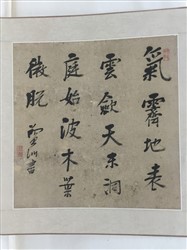 氣霽地表
雲斂天末洞
庭始波木葉
微脫
書